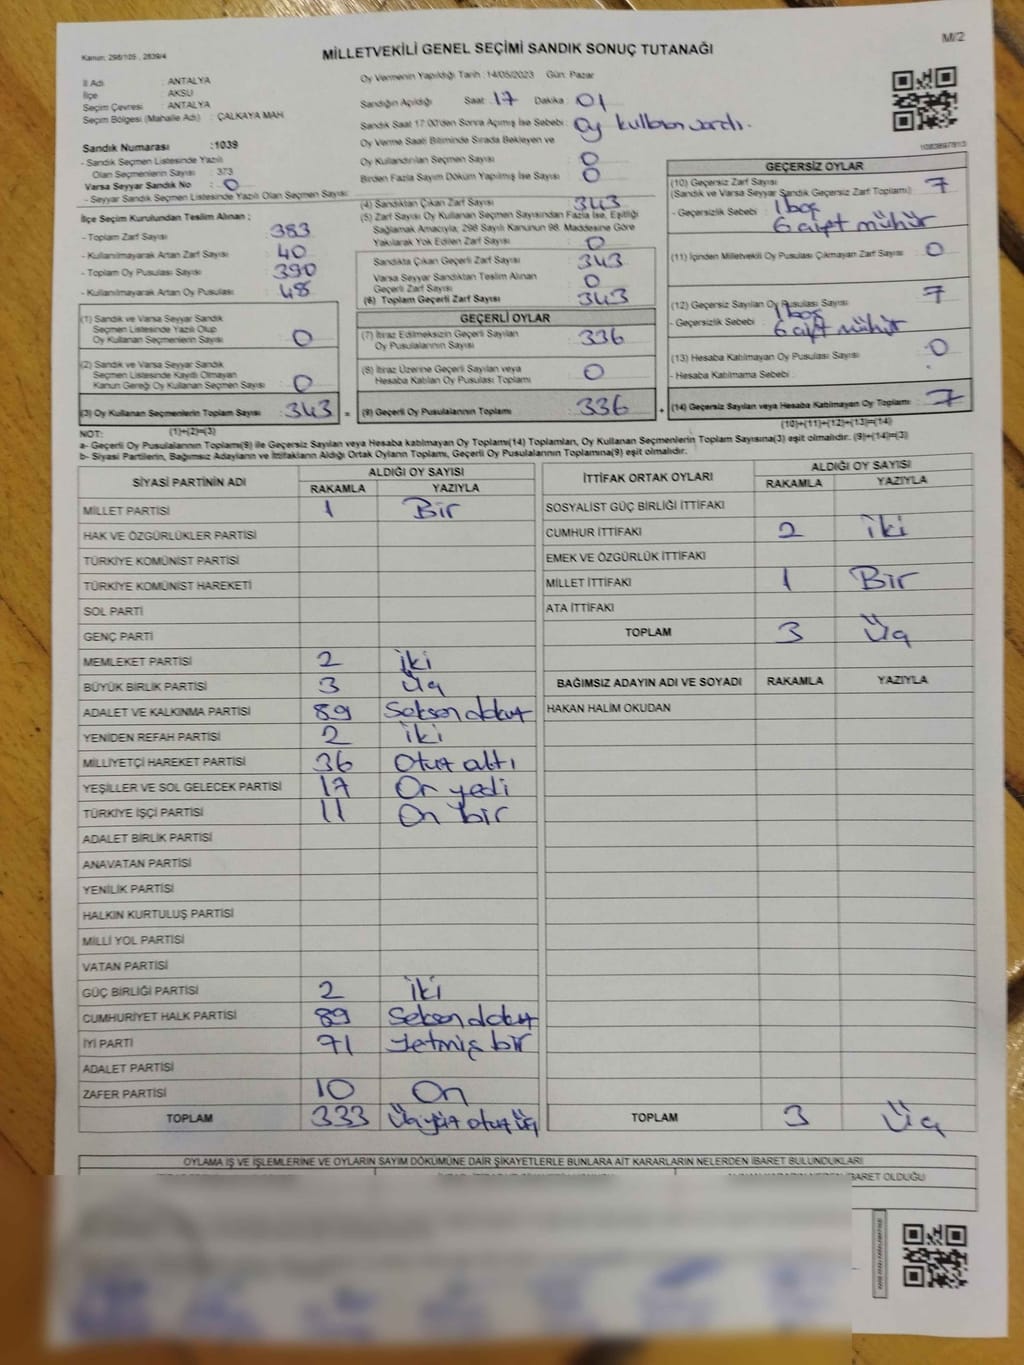 Kanun: 298/105 , 2839/4
MİLLETVEKİLİ GENEL SEÇİMİ SANDIK SONUÇ TUTANAĞI
M/2
İl Adı : ANTALYA
İlçe : AKSU
Seçim Çevresi : ANTALYA
Seçim Bölgesi (Mahalle Adı) : ÇALKAYA MAH
Sandık Numarası :1039
- Sandık Seçmen Listesinde Yazılı
Olan Seçmenlerin Sayısı : 373
Varsa Seyyar Sandık No : 0
- Seyyar Sandık Seçmen Listesinde Yazılı Olan Seçmen Sayısı:
Oy Vermenin Yapıldığı Tarih :14/05/2023 Gün: Pazar
Sandığın Açıldığı Saat: 17 Dakika : 01
Sandık Saat 17:00'den Sonra Açımış İse Sebebi : oy kullanan vardı.
Oy Verme Saati Bitiminde Sırada Bekleyen ve
Oy Kullandırılan Seçmen Sayısı : 0
Birden Fazla Sayım Döküm Yapılmış İse Sayısı : 0
İlçe Seçim Kurulundan Teslim Alınan ;
- Toplam Zarf Sayısı : 383
- Kullanılmayarak Artan Zarf Sayısı : 40
- Toplam Oy Pusulası Sayısı : 390
- Kullanılmayarak Artan Oy Pusulası : 48
(1) Sandık ve Varsa Seyyar Sandık
Seçmen Listesinde Yazılı Olup
Oy Kullanan Seçmenlerin Sayısı : 0
(2) Sandık ve Varsa Seyyar Sandık
Seçmen Listesinde Kaydı Olmayan
Kanun Gereği Oy Kullanan Seçmen Sayısı : 0
(3) Oy Kullanan Seçmenlerin Toplam Sayısı : 343 =
(1)+(2)=(3)
(4) Sandıktan Çıkan Zarf Sayısı : 343
(5) Zarf Sayısı Oy Kullanan Seçmen Sayısından Fazla İse, Eşitliği
Sağlamak Amacıyla, 298 Sayılı Kanunun 98. Maddesine Göre
Yakılarak Yok Edilen Zarf Sayısı : 0
Sandıkta Çıkan Geçerli Zarf Sayısı : 343
Varsa Seyyar Sandıktan Teslim Alınan
Geçerli Zarf Sayısı : 0
(6) Toplam Geçerli Zarf Sayısı : 343
GEÇERLİ OYLAR
(7) İtiraz Edilmeksizin Geçerli Sayılan
Oy Pusulalarının Sayısı : 336
(8) İtiraz Üzerine Geçerli Sayılan veya
Hesaba Katılan Oy Pusulası Toplamı : 0
(9) Geçerli Oy Pusulalarının Toplamı : 336 +
1083897813
GEÇERSİZ OYLAR
(10) Geçersiz Zarf Sayısı
(Sandık ve Varsa Seyyar Sandık Geçersiz Zarf Toplamı) : 7
- Geçersizlik Sebebi : 1 boş
6 çift mühür
(11) İçinden Milletvekili Oy Pusulası Çıkmayan Zarf Sayısı : 0
(12) Geçersiz Sayılan Oy Pusulası Sayısı : 7
- Geçersizlik Sebebi : 1 boş
6 çift mühür
(13) Hesaba Katılmayan Oy Pusulası Sayısı : 0
- Hesaba Katılmama Sebebi :
(14) Geçersiz Sayılan veya Hesaba Katılmayan Oy Toplamı : 7
(10)+(11)+(12)+(13)=(14)
NOT:
a- Geçerli Oy Pusulalarının Toplamı(9) ile Geçersiz Sayılan veya Hesaba katılmayan Oy Toplamı(14) Toplamları, Oy Kullanan Seçmenlerin Toplam Sayısına(3) eşit olmalıdır. (9)+(14)=(3)
b- Siyasi Partilerin, Bağımsız Adayların ve İttifakların Aldığı Ortak Oyların Toplamı, Geçerli Oy Pusulalarının Toplamına(9) eşit olmalıdır.
SİYASİ PARTİNİN ADI ALDIĞI OY SAYISI
RAKAMLA YAZIYLA
MİLLET PARTİSİ 1 Bir
HAK VE ÖZGÜRLÜKLER PARTİSİ
TÜRKİYE KOMÜNİST PARTİSİ
TÜRKİYE KOMÜNİST HAREKETİ
SOL PARTİ
GENÇ PARTİ
MEMLEKET PARTİSİ 2 iki
BÜYÜK BİRLİK PARTİSİ 3 Üç
ADALET VE KALKINMA PARTİSİ 89 Seksen dokuz
YENİDEN REFAH PARTİSİ 2 iki
MİLLİYETÇİ HAREKET PARTİSİ 36 Otuz altı
YEŞİLLER VE SOL GELECEK PARTİSİ 17 On yedi
TÜRKİYE İŞÇİ PARTİSİ 11 On bir
ADALET BİRLİK PARTİSİ
ANAVATAN PARTİSİ
YENİLİK PARTİSİ
HALKIN KURTULUŞ PARTİSİ
MİLLİ YOL PARTİSİ
VATAN PARTİSİ
GÜÇ BİRLİĞİ PARTİSİ 2 iki
CUMHURİYET HALK PARTİSİ 89 Seksen dokuz
İYİ PARTİ 71 Yetmiş bir
ADALET PARTİSİ
ZAFER PARTİSİ 10 On
TOPLAM 333 Üçyüz otuz üç
İTTİFAK ORTAK OYLARI ALDIĞI OY SAYISI
RAKAMLA YAZIYLA
SOSYALİST GÜÇ BİRLİĞİ İTTİFAKI
CUMHUR İTTİFAKI 2 iki
EMEK VE ÖZGÜRLÜK İTTİFAKI
MİLLET İTTİFAKI 1 Bir
ATA İTTİFAKI
TOPLAM 3 Üç
BAĞIMSIZ ADAYIN ADI VE SOYADI RAKAMLA YAZIYLA
HAKAN HALİM OKUDAN
TOPLAM 3 Üç
OYLAMA İŞ VE İŞLEMLERİNE VE OYLARIN SAYIM DÖKÜMÜNE DAİR ŞİKAYETLERLE BUNLARA AİT KARARLARIN NELERDEN İBARET BULUNDUKLARI
İBARET OLDUĞU